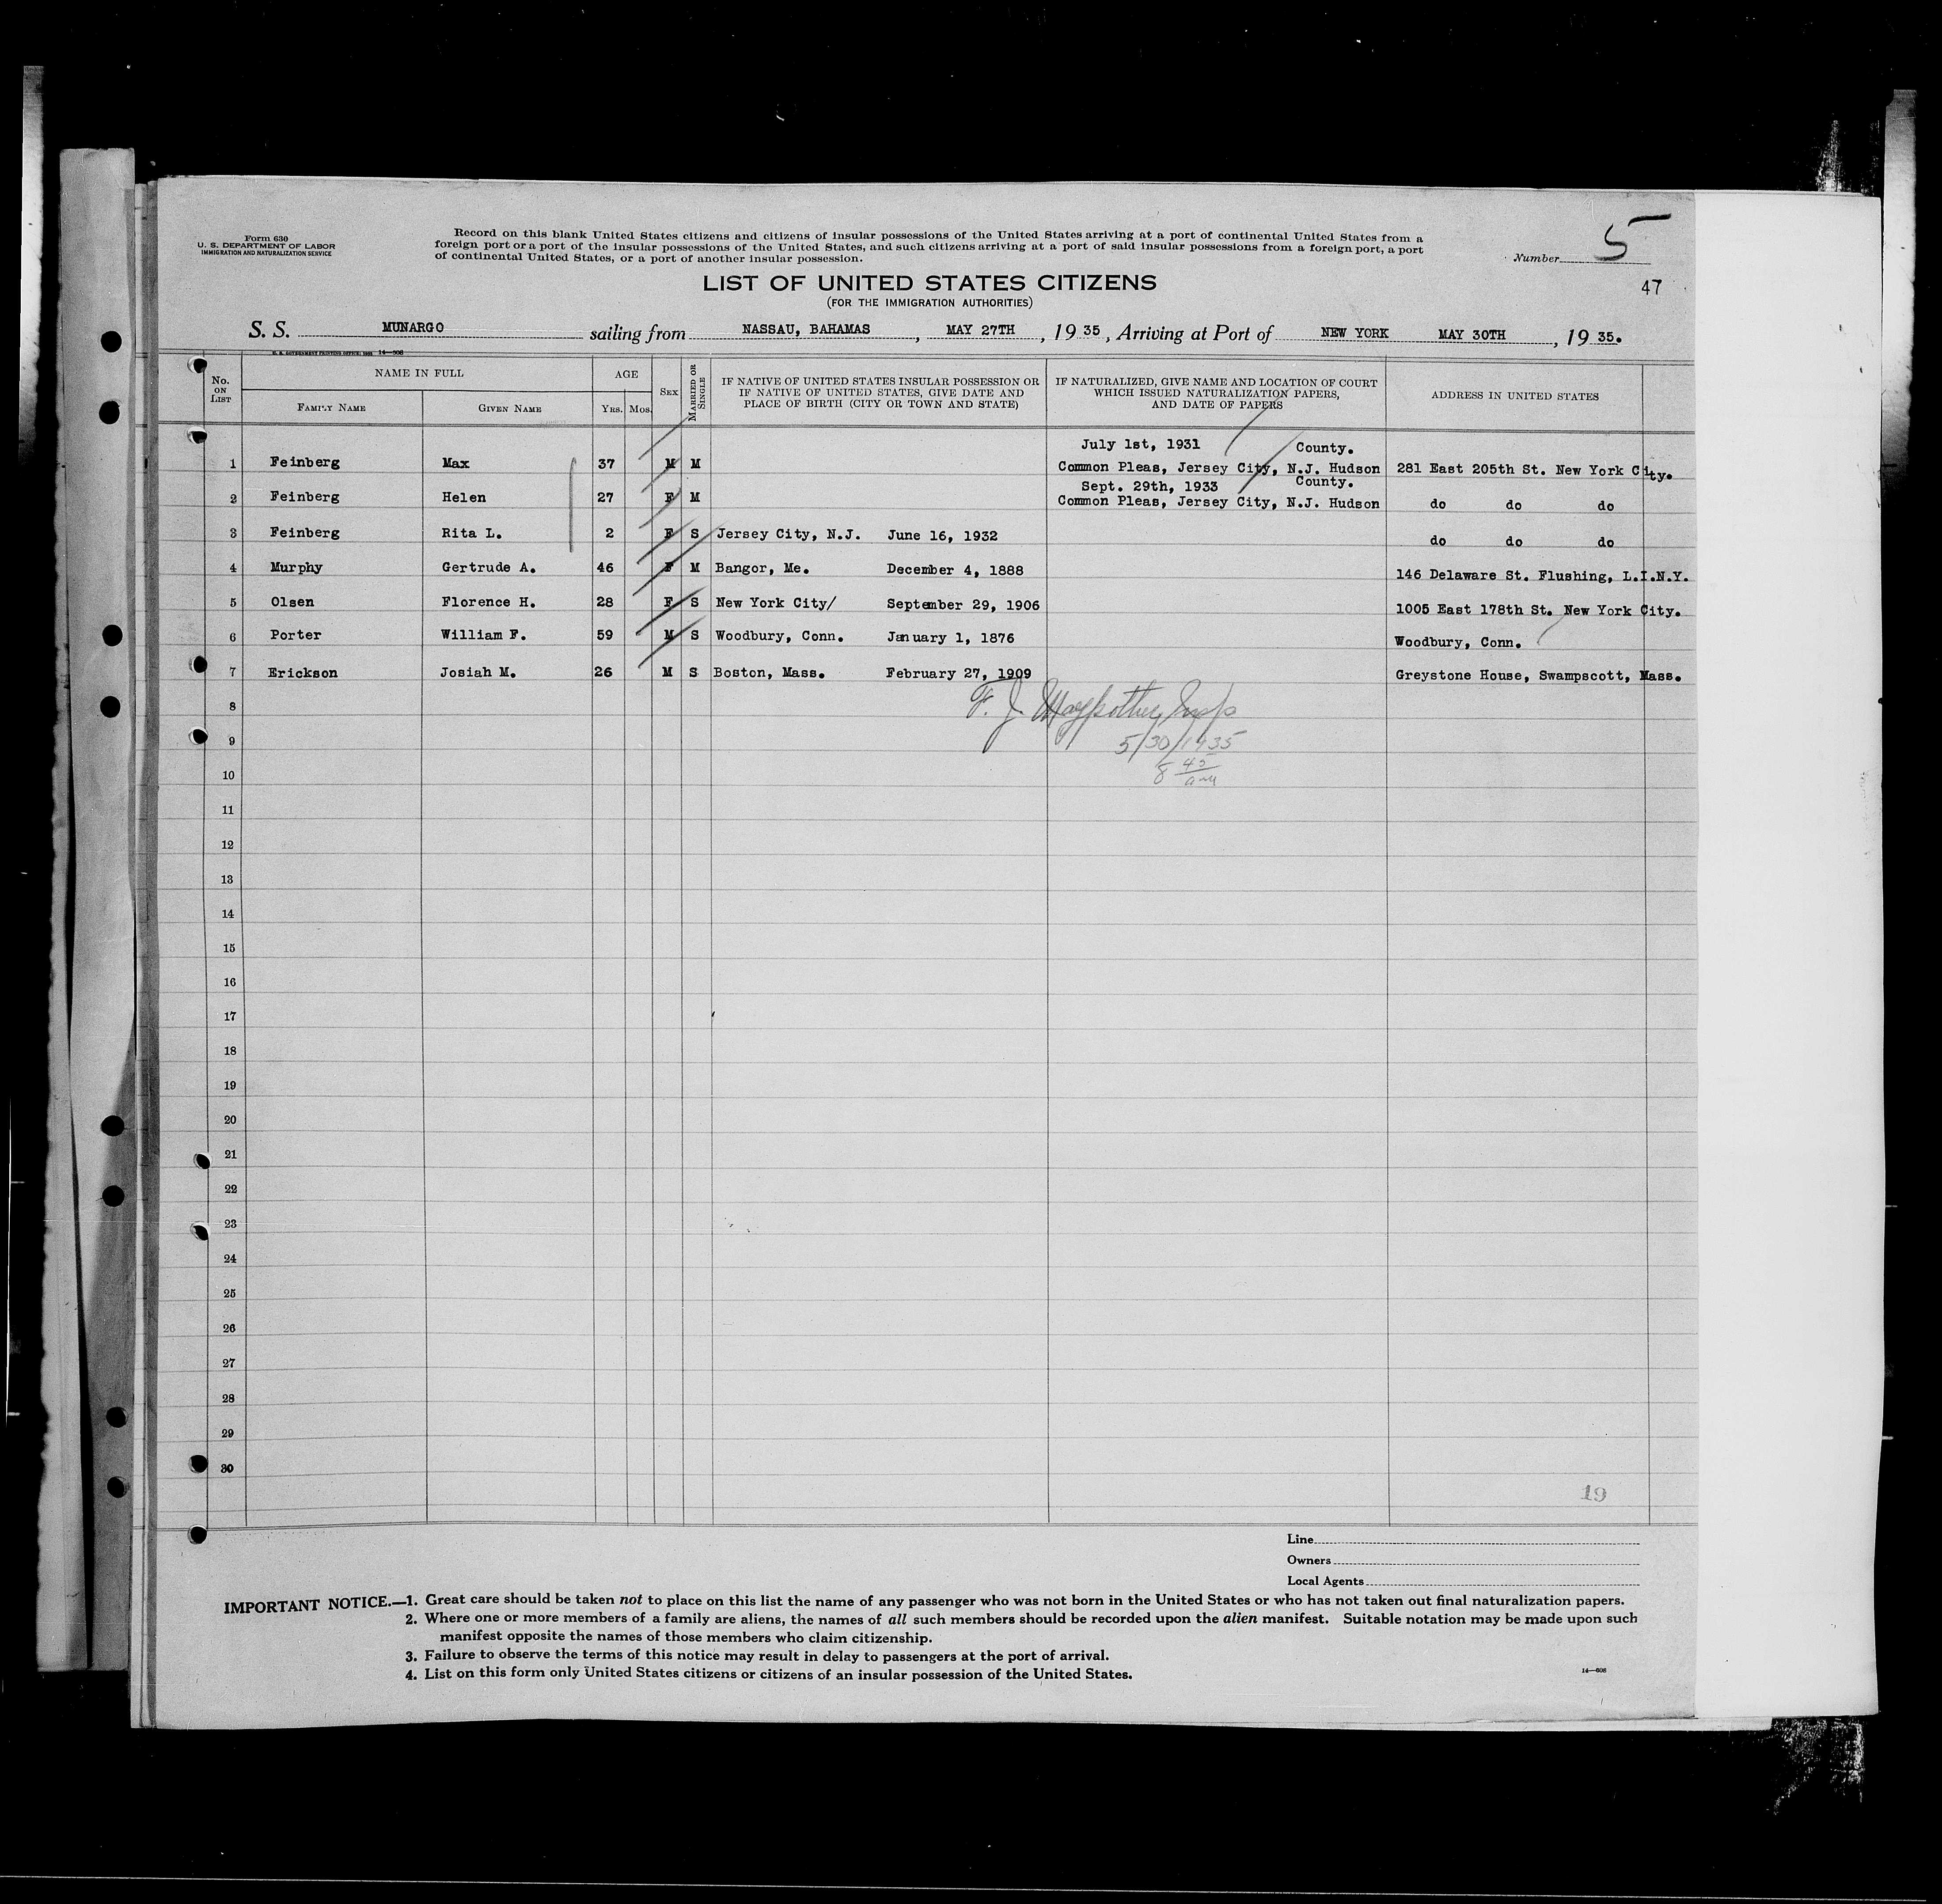 Form 630
U. S. DEPARTMENT OF LABOR
IMMIGRATION AND NATURALIZATION SERVICE
Record on this blank United States citizens and citizens of insular possessions of the United States arriving at a port of continental United States from a
foreign port or a port of the insular possessions of the United States, and such citizens arriving at a port of said insular possessions from a foreign port, a port
of continental United States, or a port of another insular possession.
Number 5
47
LIST OF UNITED STATES CITIZENS
(FOR THE IMMIGRATION AUTHORITIES)
S. S. MUNARGO sailing from NASSAU, BAHAMAS, MAY 27TH, 1935, Arriving at Port of NEW YORK MAY 30TH, 1935.
No. ON LIST
NAME IN FULL
FAMILY NAME
GIVEN NAME
AGE
YRS. MOS.
SEX
MARRIED OR SINGLE
IF NATIVE OF UNITED STATES INSULAR POSSESSION OR
IF NATIVE OF UNITED STATES, GIVE DATE AND
PLACE OF BIRTH (CITY OR TOWN AND STATE)
IF NATURALIZED, GIVE NAME AND LOCATION OF COURT
WHICH ISSUED NATURALIZATION PAPERS,
AND DATE OF PAPERS
ADDRESS IN UNITED STATES
July 1st, 1931 County.
1 Feinberg Max 37 M M Common Pleas, Jersey City, N.J. Hudson 281 East 205th St. New York City.
Sept. 29th, 1933 County.
2 Feinberg Helen 27 F M Common Pleas, Jersey City, N.J. Hudson do do do
3 Feinberg Rita L. 2 F S Jersey City, N.J. June 16, 1932 do do do
4 Murphy Gertrude A. 46 F M Bangor, Me. December 4, 1888 146 Delaware St. Flushing, L.I.N.Y.
5 Olsen Florence H. 28 F S New York City/ September 29, 1906 1005 East 178th St. New York City.
6 Porter William F. 59 M S Woodbury, Conn. January 1, 1876 Woodbury, Conn.
7 Erickson Josiah M. 26 M S Boston, Mass. February 27, 1909 Greystone House, Swampscott, Mass.
8
F. J.
9
5/30/1935
10
8 45 am
11
12
13
14
15
16
17
18
19
20
21
22
23
24
25
26
27
28
29
30
19
Line
Owners
Local Agents
IMPORTANT NOTICE.—1. Great care should be taken not to place on this list the name of any passenger who was not born in the United States or who has not taken out final naturalization papers.
2. Where one or more members of a family are aliens, the names of all such members should be recorded upon the alien manifest. Suitable notation may be made upon such
manifest opposite the names of those members who claim citizenship.
3. Failure to observe the terms of this notice may result in delay to passengers at the port of arrival.
4. List on this form only United States citizens or citizens of an insular possession of the United States.